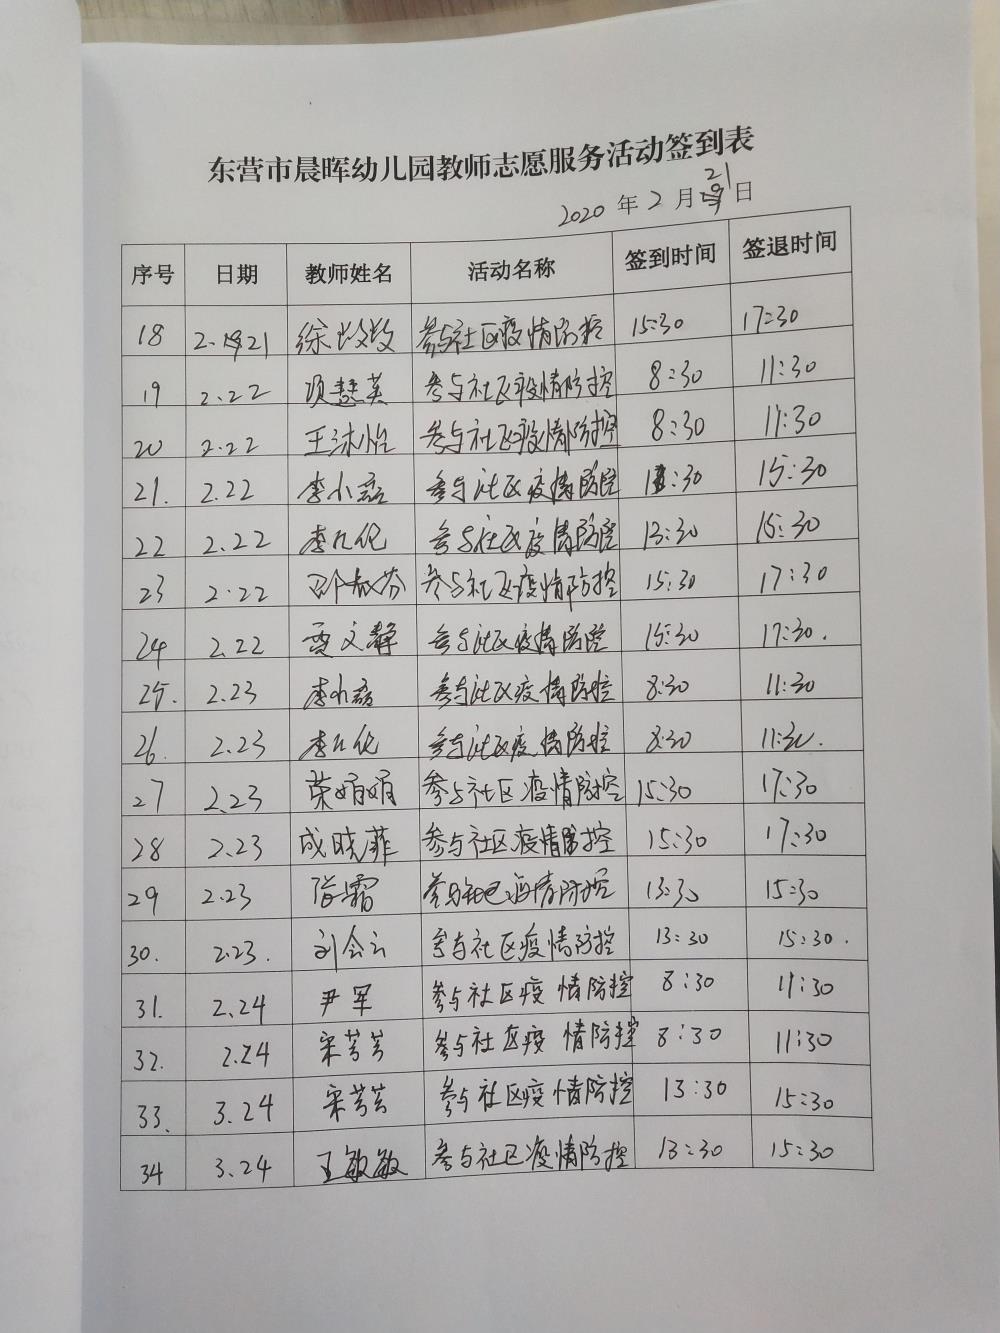 东营市晨晖幼儿园教师志愿服务活动签到表
2020 年 2 月 21 日
序号 日期 教师姓名 活动名称 签到时间 签退时间
18 2.21 徐姣姣 参与社区疫情防控 15:30 17:30
19 2.22 项慧英 参与社区疫情防控 8:30 11:30
20 2.22 王沐怡 参与社区疫情防控 8:30 11:30
21. 2.22 李小磊 参与社区疫情防控 13:30 15:30
22 2.22 参与社区疫情防控 13:30 15:30
23 2.22 参与社区疫情防控 15:30 17:30
24 2.22 贾文静 参与社区疫情防控 15:30 17:30.
25. 2.23 李小磊 参与社区疫情防控 8:30 11:30
26. 2.23 参与社区疫情防控 8:30 11:30.
27 2.23 荣娟娟 参与社区疫情防控 15:30 17:30
28 2.23 成晓菲 参与社区疫情防控 15:30 17:30
29 2.23 张霜 参与社区疫情防控 13:30 15:30
30. 2.23. 刘会云 参与社区疫情防控 13:30 15:30.
31. 2.24 尹军 参与社区疫情防控 8:30 11:30
32. 2.24 宋芳芳 参与社区疫情防控 8:30 11:30
33. 3.24 宋芳芳 参与社区疫情防控 13:30 15:30
34 3.24 王敏敏 参与社区疫情防控 13:30 15:30